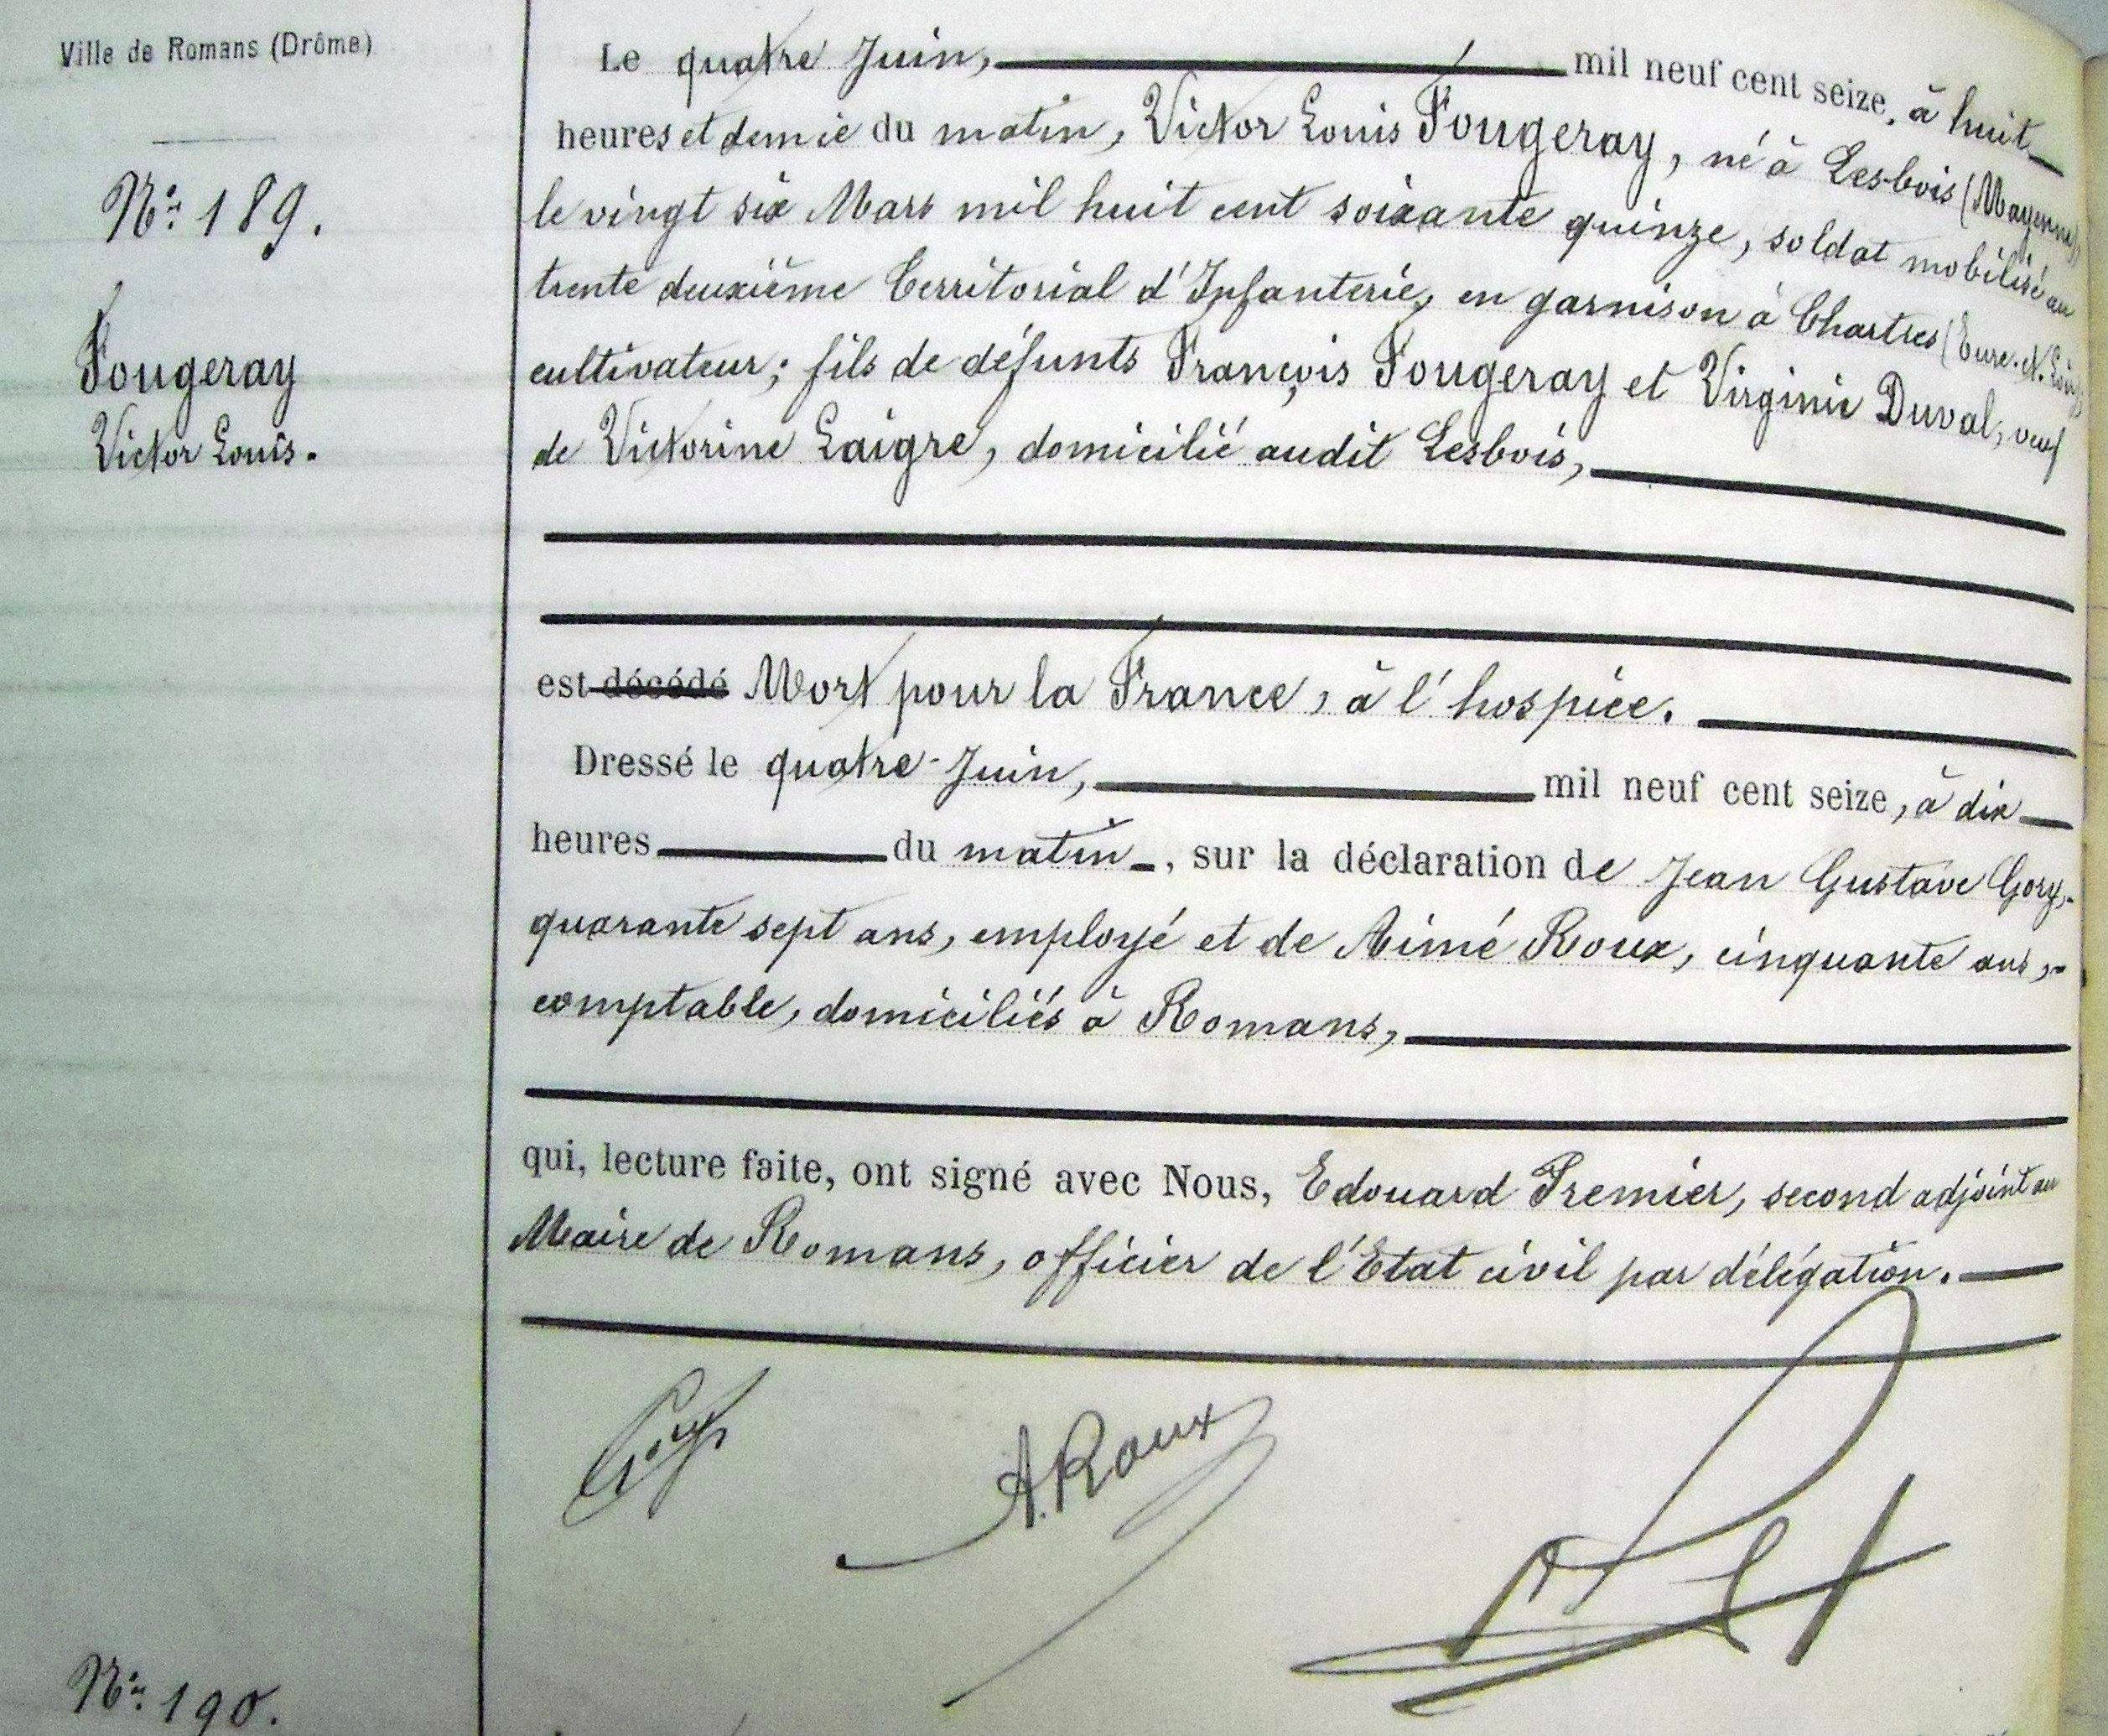 Ville de Romans (Drôme)
No: 189.
Fougeray
Victor Louis.
Le quatre Juin, mil neuf cent seize, à huit
heures et demie du matin, Victor Louis Fougeray, né à Lesbois (Mayenne)
le vingt six Mars mil huit cent soixante quinze, soldat mobilisé au
trente deuxième Territorial d'Infanterie, en garnison à Chartres (Eure-et-Loir)
cultivateur; fils de défunts François Fougeray et Virginie Duval, veuf
de Victorine Laigre, domicilié audit Lesbois,
est décédé Mort pour la France, à l'hospice.
Dressé le quatre-Juin, mil neuf cent seize, à dix
heures du matin, sur la déclaration de Jean Gustave Gory,
quarante sept ans, employé et de Aimé Roux, cinquante ans,
comptable, domiciliés à Romans,
qui, lecture faite, ont signé avec Nous, Edouard Premier, second adjoint au
Maire de Romans, officier de l'Etat civil par délégation.
A. Roux
No: 190.